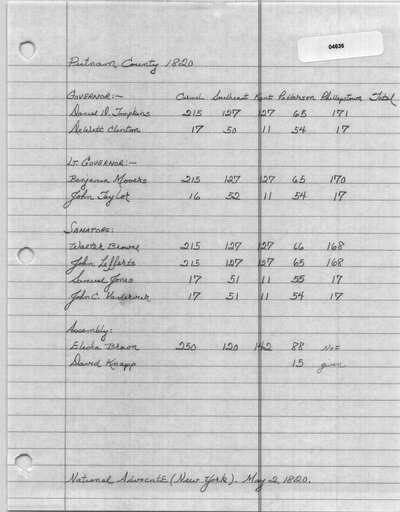 04636
Putnam County 1820
Governor:- Carmel Southeast Kent Patterson Philipstown Total
Daniel D. Tompkins 215 127 127 65 171
DeWitt Clinton 17 50 11 54 17
Lt. Governor:-
Benjamin Mooers 215 127 127 65 170
John Taylor 16 52 11 54 17
Senators:
Walter Bowne 215 127 127 66 168
John Lefferts 215 127 127 65 168
Samuel Jones 17 51 11 55 17
John C. Vanderveer 17 51 11 54 17
Assembly:
Elisha Brown 250 120 142 88 not
David Knapp 15 given
National Advocate (New York). May 2, 1820.